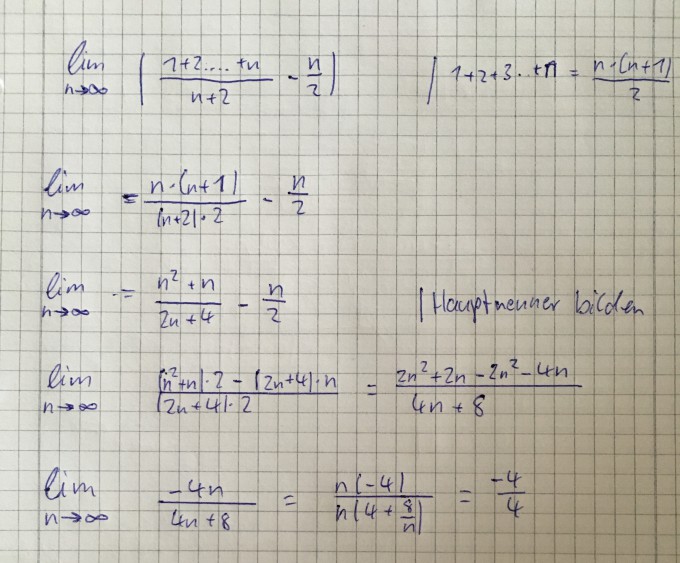 lim n→∞ ( (1+2....+n)/(n+2) - n/2 ) | 1+2+3..+n = n·(n+1)/2
lim n→∞ = n·(n+1)/((n+2)·2) - n/2
lim n→∞ = (n²+n)/(2n+4) - n/2 | Hauptnenner bilden
lim n→∞ ((n²+n)·2-(2n+4)·n)/((2n+4)·2) = (2n²+2n-2n²-4n)/(4n+8)
lim n→∞ -4n/(4n+8) = n(-4)/(n(4+8/n)) = -4/4